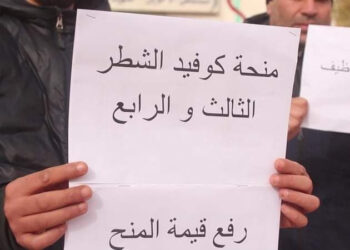 منحة كوفيد الشطر
الثالث و الرابع
رفع قيمة المنح